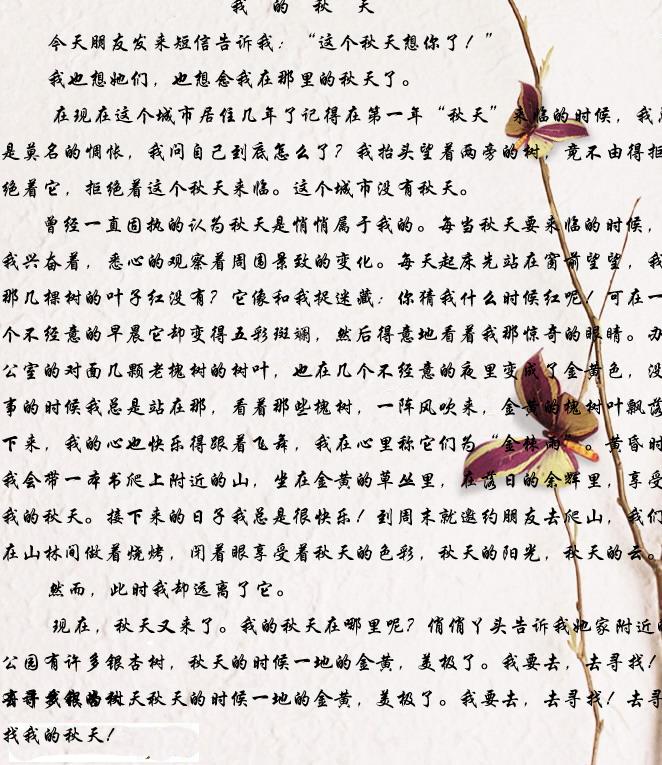 我的秋天
今天朋友发来短信告诉我:“这个秋天想你了!”
我也想她们,也想念我在那里的秋天了。
在现在这个城市居住几年了记得在第一年“秋天”来临的时候,我
是莫名的惆怅,我问自己到底怎么了?我抬头望着两旁的树,竟不由得拒
绝着它,拒绝着这个秋天来临。这个城市没有秋天。
曾经一直固执的认为秋天是悄悄属于我的。每当秋天要来临的时候,
我兴奋着,悉心的观察着周围景致的变化。每天起床先站在窗前望望,我
那几棵树的叶子红没有?它像和我捉迷藏:你猜我什么时候红呢!可在一
个不经意的早晨它却变得五彩斑斓,然后得意地看着我那惊奇的眼睛。办
公室的对面几颗老槐树的树叶,也在几个不经意的夜里变成了金黄色,没
事的时候我总是站在那,看着那些槐树,一阵风吹来,金黄的槐树叶飘落
下来,我的心也快乐得跟着飞舞,我在心里称它们为“金株雨”。黄昏时
我会带一本书爬上附近的山,坐在金黄的草丛里,在落日的余辉里,享受
我的秋天。接下来的日子我总是很快乐!到周末就邀约朋友去爬山,我们
在山林间做着烧烤,闭着眼享受着秋天的色彩,秋天的阳光,秋天的云。
然而,此时我却远离了它。
现在,秋天又来了。我的秋天在哪里呢?俏俏丫头告诉我她家附近的
公园有许多银杏树,秋天的时候一地的金黄,美极了。我要去,去寻找!
天秋天的时候一地的金黄,美极了。我要去,去寻找!去寻
找我的秋天!